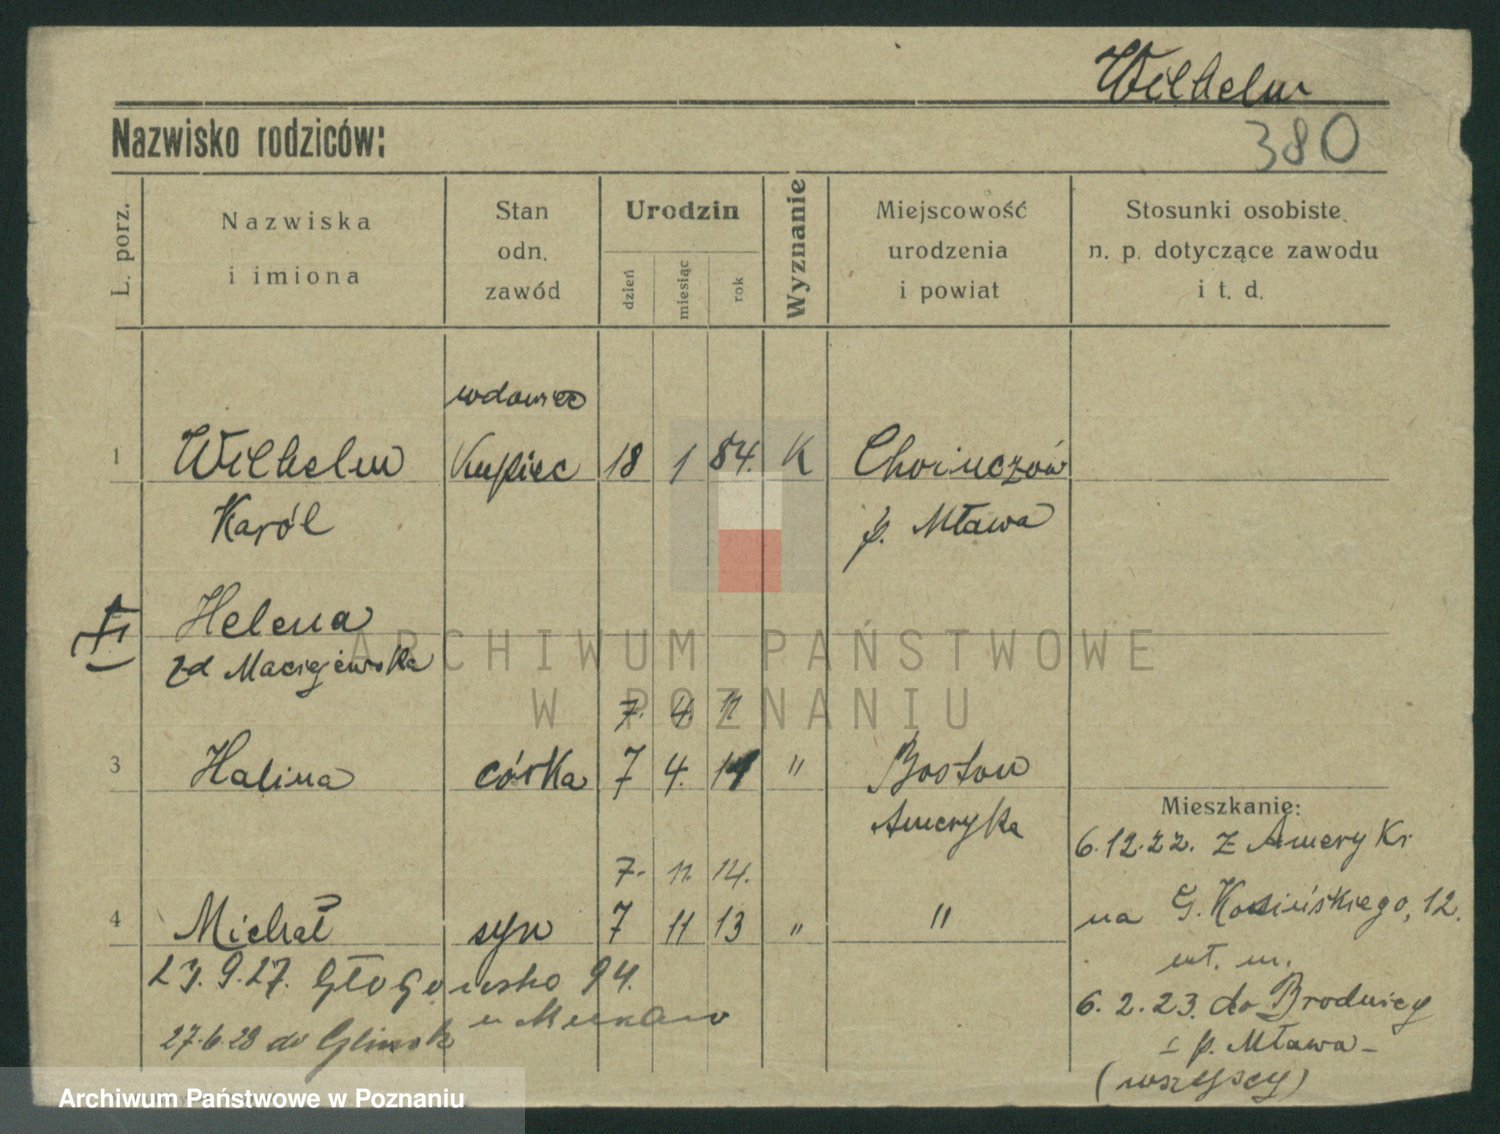 Wilhelm
380
Nazwisko rodziców:
L. porz.
Nazwiska
i imiona
Stan
odn.
zawód
Urodzin
dzień
miesiąc
rok
Wyznanie
Miejscowość
urodzenia
i powiat
Stosunki osobiste
n. p. dotyczące zawodu
i t. d.
wdowiec
1 Wilhelm Kupiec 18 1 84. K
Karól p. Mława
Helena
zd
ARCHIWUM PAŃSTWOWE
W POZNANIU
7. 4. 11
3 Halina córka 7 4. " Boston
Ameryka
Mieszkanie:
6.12.22. z Ameryki
7. 11. 14.
4 Michał syn 7 11 13 " "
na G. 12.
23.9.27. 94.
6.2.23. do Brodnicy
27.6.28 do
p. Mława
(wszyscy)
Archiwum Państwowe w Poznaniu